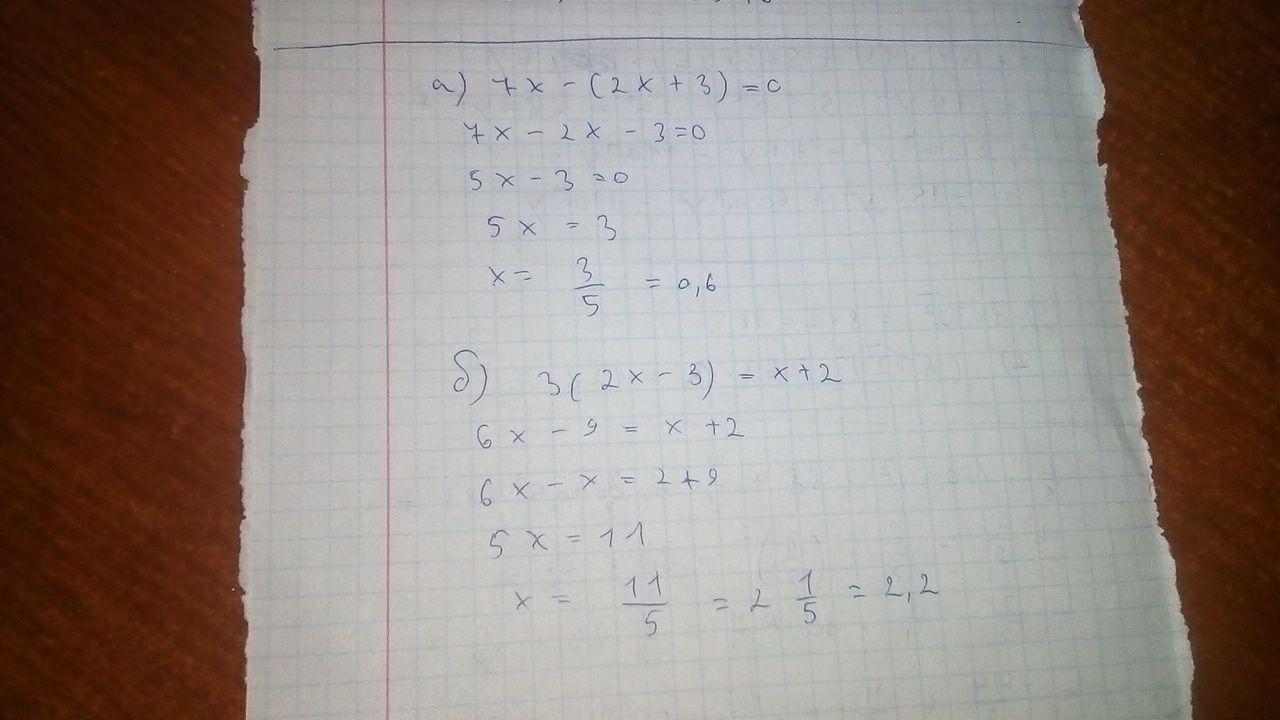 а) 7x - (2x + 3) = 0
7x - 2x - 3 = 0
5x - 3 = 0
5x = 3
x = 3/5 = 0,6
б) 3(2x - 3) = x + 2
6x - 9 = x + 2
6x - x = 2 + 9
5x = 11
x = 11/5 = 2 1/5 = 2,2